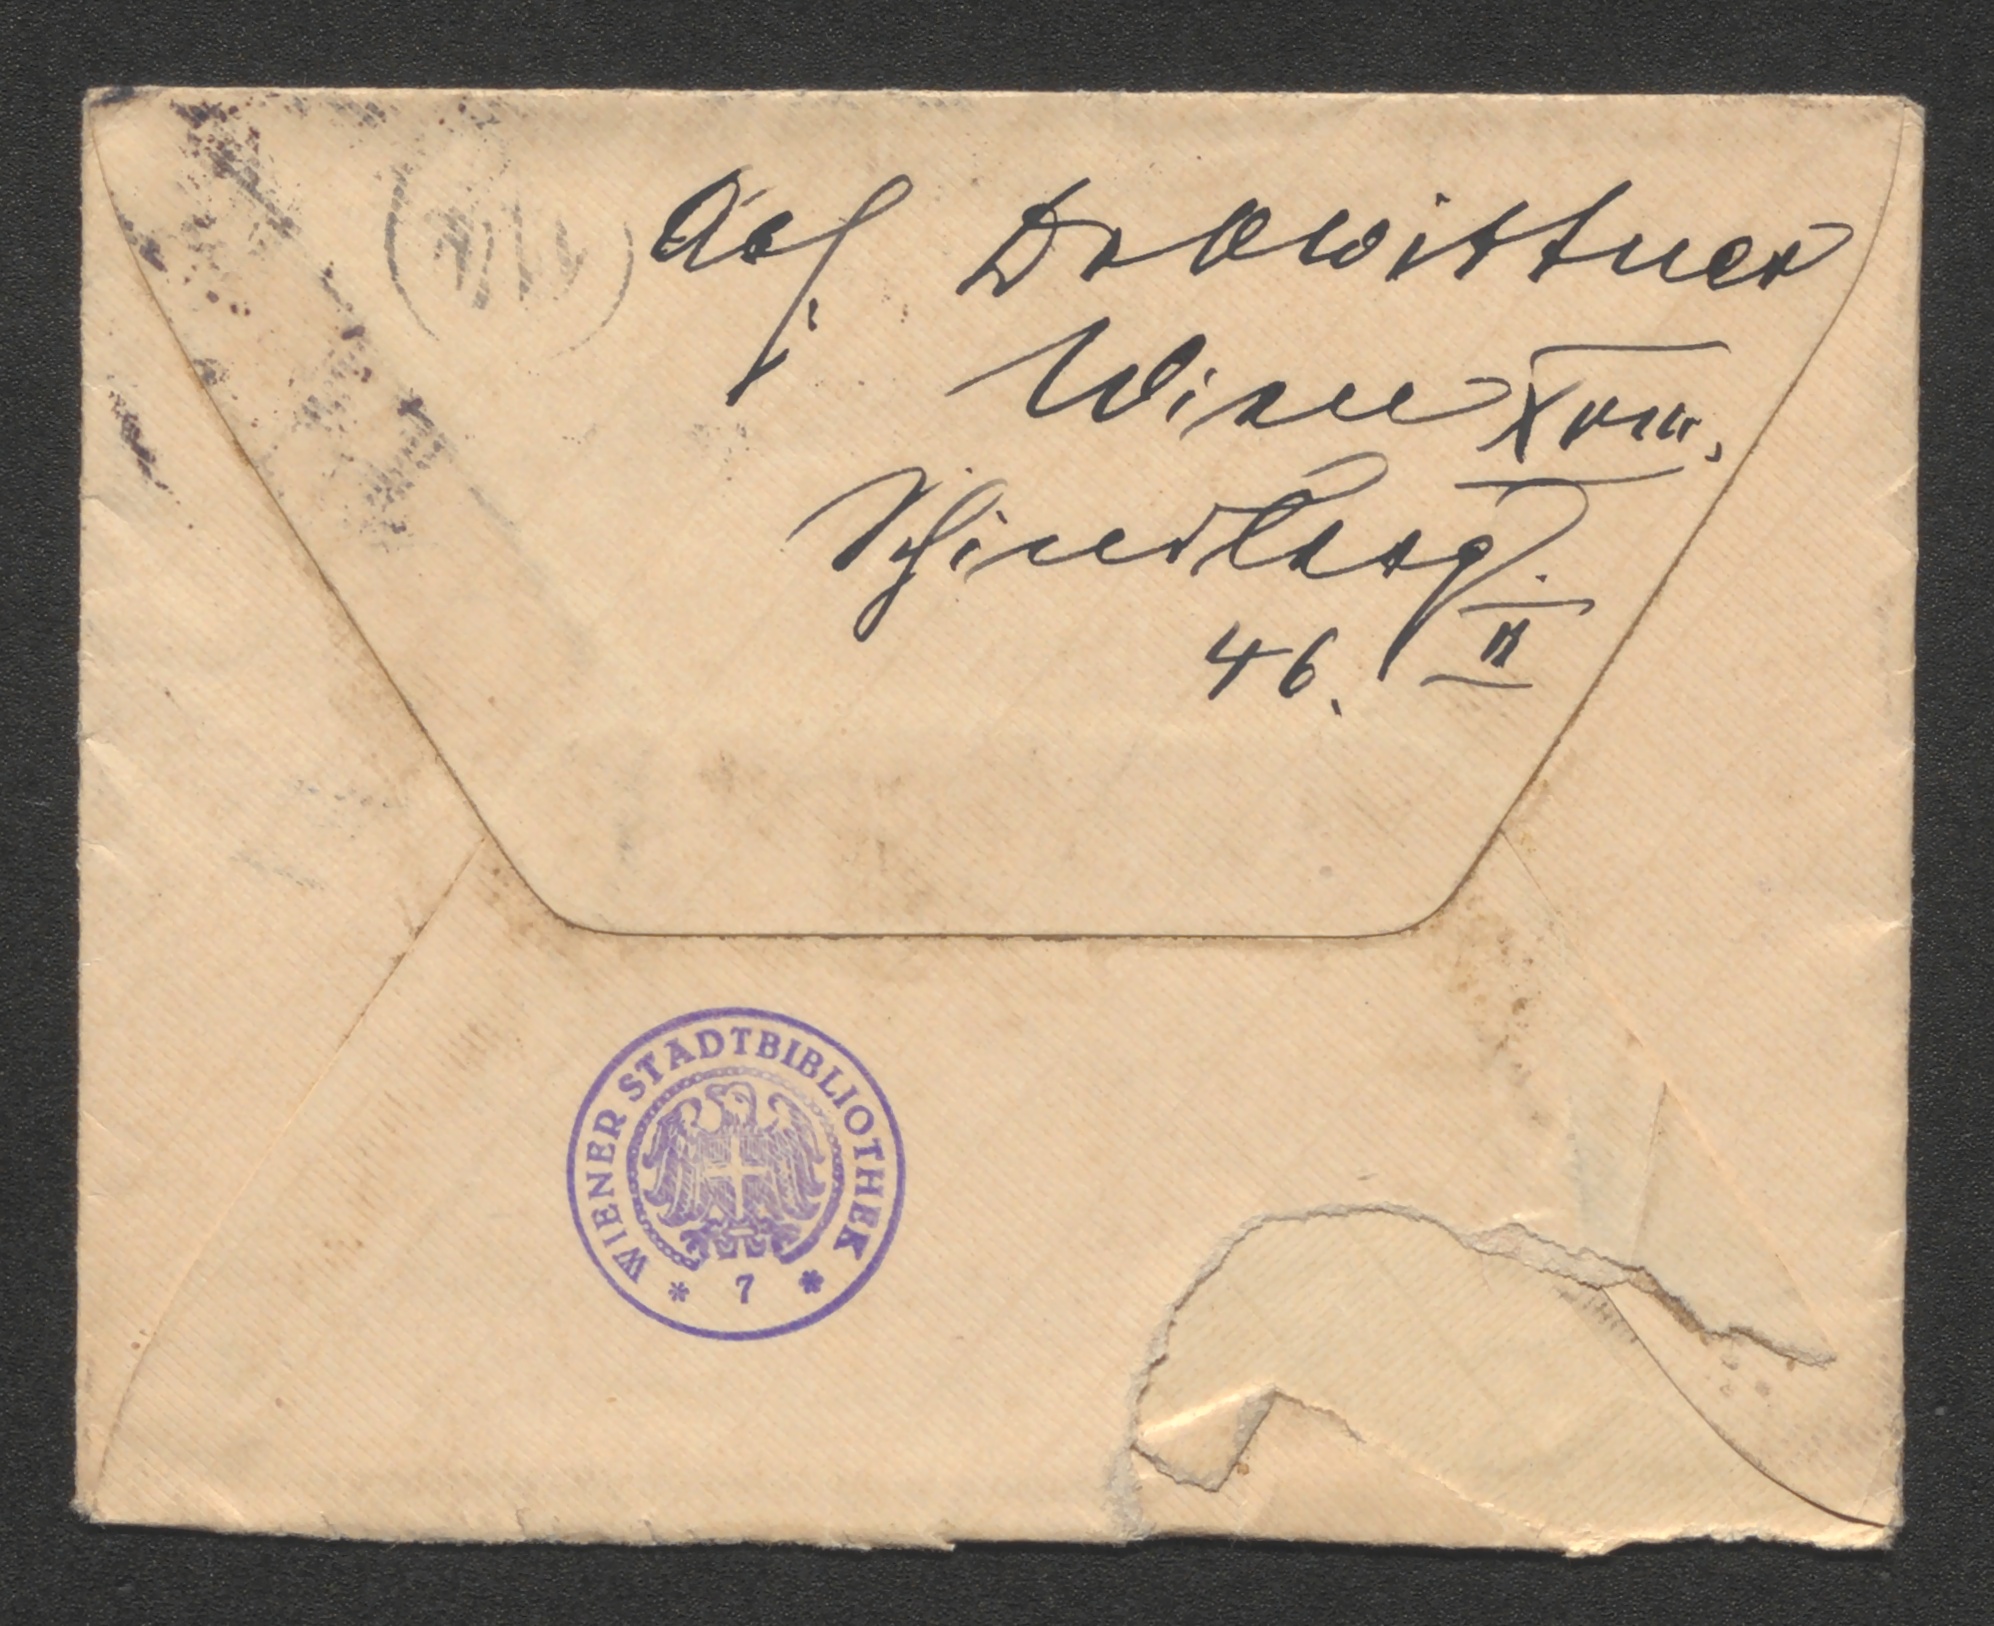 Abs: Dr OWittner
Wien XVIII.
Schindlerg.
46. II
WIENER STADTBIBLIOTHEK
* 7 *